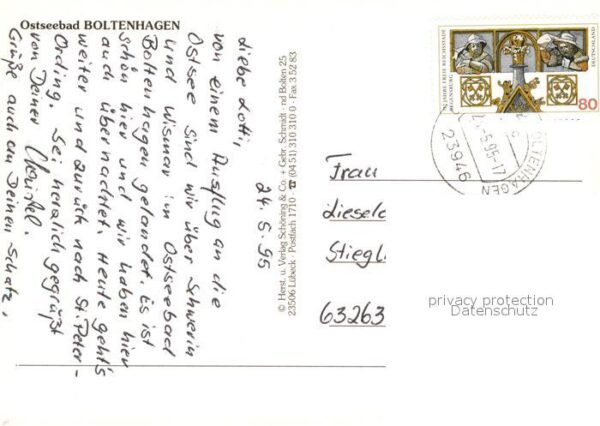 Ostseebad BOLTENHAGEN
24.5.95
Liebe Lotti,
von einem Ausflug an die
Ostsee sind wir über Schwerin
und Wismar im Ostseebad
Boltenhagen gelandet. Es ist
schön hier und wir haben hier
auch übernachtet. Heute geht's
weiter und zurück nach St. Peter-
Ording. Sei herzlich gegrüßt
von Deiner Christel.
Grüße auch an Deinen Schatz.
© Herst. u. Verlag Schöning & Co. + Gebr. Schmidt · nd Bolten 25
23506 Lübeck · Postfach 1710 · ☎ (04 51) 310 310 0 · Fax 3 52 83
JAHRE FREIE REICHSSTADT
REGENSBURG
DEUTSCHLAND
80
BOLTENHAGEN
5.95-17
23946
Frau
Liesel
Stiegl
63263
privacy protection
Datenschutz